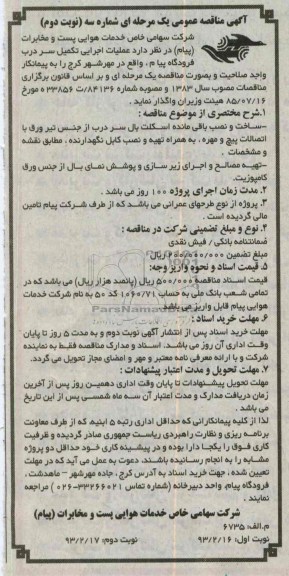 آگهی مناقصه عمومی یک مرحله ای شماره سه (نوبت دوم)
شرکت سهامی خاص خدمات هوایی پست و مخابرات
(پیام) در نظر دارد عملیات اجرایی تکمیل سر درب
فرودگاه پیام، واقع در مهرشهر کرج را به پیمانکار
واجد صلاحیت و بصورت مناقصه یک مرحله ای و بر اساس قانون برگزاری
مناقصات مصوب سال ۱۳۸۳ و مصوبه شماره ۸۴۱۳۶/ت ۳۳۸۵۶ ه مورخ
۸۵/۰۷/۱۶ هیئت وزیران واگذار نماید.
۱. شرح مختصری از موضوع مناقصه:
-ساخت و نصب باقی مانده اسکلت بال سر درب از جنس تیر ورق با
اتصالات پیچ و مهره، به همراه تهیه و نصب کابل نگهدارنده، مطابق نقشه
و مشخصات
-تهیه مصالح و اجرای زیر سازی و پوشش نمای بال از جنس ورق
کامپوزیت.
۲. مدت زمان اجرای پروژه ۱۰۰ روز می باشد.
۳. پروژه از نوع طرحهای عمرانی می باشد که از طرف شرکت پیام تامین
مالی گردیده است.
۴. نوع و مبلغ تضمینی شرکت در مناقصه:
ضمانتنامه بانکی / فیش نقدی
مبلغ تضمین ریال
۵. قیمت اسناد و نحوه واریز وجه:
قیمت اسناد مناقصه ۵۰۰/۰۰۰ ریال (پانصد هزار ریال) می باشد که در
تمامی شعب بانک ملی به حساب ۱۰۶۰/۷۱ کد ۵۰ به نام شرکت خدمات
هوایی پیام قابل واریز می باشد.
۶. مهلت خرید اسناد:
مهلت خرید اسناد پس از انتشار آگهی نوبت دوم و به مدت ۵ روز تا پایان
وقت اداری آن روز می باشد. اسناد و مدارک مناقصه فقط به نماینده
شرکت و با ارائه معرفی نامه معتبر و مهر و امضای مجاز تحویل می گردد.
۷. مهلت تحویل و مدت اعتبار پیشنهادات:
مهلت تحویل پیشنهادات تا پایان وقت اداری دهمین روز پس از آخرین
زمان دریافت مدارک و مدت اعتبار آن سه ماه شمسی پس از این تاریخ
می باشد.
لذا از کلیه پیمانکارانی که حداقل اداری رتبه ۵ ابنیه که از طرف معاونت
برنامه ریزی و نظارت راهبردی ریاست جمهوری صادر گردیده و ظرفیت
کاری فوق را یکجا دارا بوده و در پیشینه کاری خود حداقل دو پروژه
مشابه را به انجام رسانیده باشند، دعوت به عمل می آید که در مهلت
تعیین شده، جهت خرید اسناد به آدرس کرج، جاده مهرشهر – ماهدشت،
فرودگاه پیام، واحد دبیرخانه (شماره تماس ۳۳۲۶۶۰۲۱-۰۲۶) مراجعه
نمایند.
شرکت سهامی خاص خدمات هوایی پست و مخابرات (پیام)
م.الف: ۶۷۳۵
نوبت اول: ۹۳/۲/۱۶ نوبت دوم: ۹۳/۲/۱۷